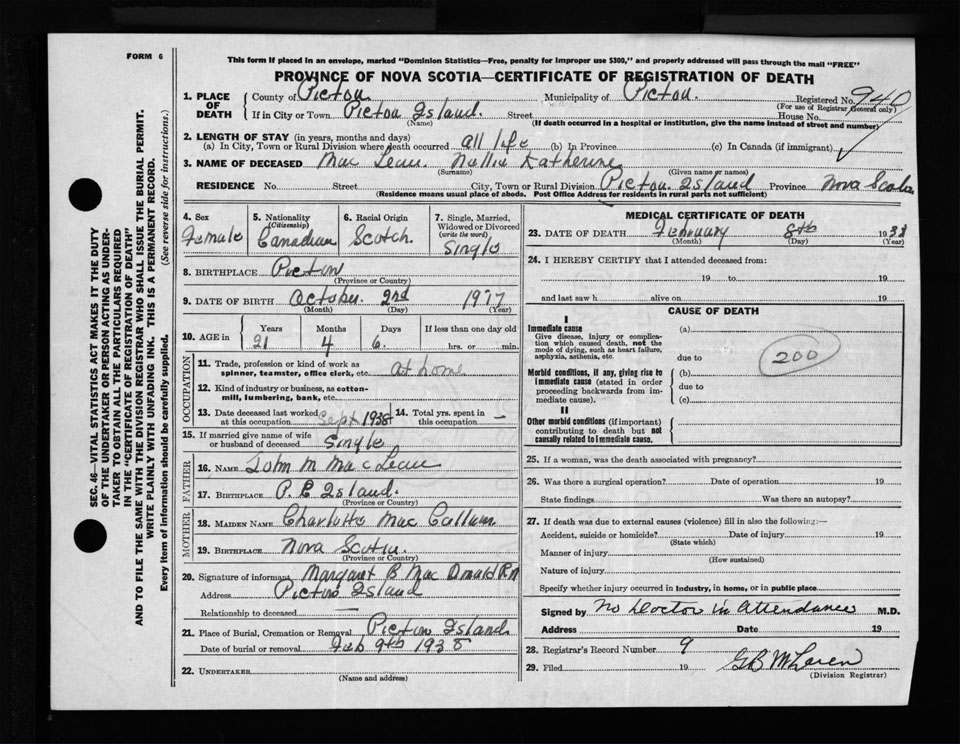 FORM 6
This form if placed in an envelope, marked "Dominion Statistics—Free, penalty for improper use $300," and properly addressed will pass through the mail "FREE"
PROVINCE OF NOVA SCOTIA—CERTIFICATE OF REGISTRATION OF DEATH
SEC. 46—VITAL STATISTICS ACT MAKES IT THE DUTY
OF THE UNDERTAKER OR PERSON ACTING AS UNDER-
TAKER TO OBTAIN ALL THE PARTICULARS REQUIRED
IN THE "CERTIFICATE OF REGISTRATION OF DEATH"
AND TO FILE THE SAME WITH THE DIVISION REGISTRAR WHO SHALL ISSUE THE BURIAL PERMIT.
WRITE PLAINLY WITH UNFADING INK. THIS IS A PERMANENT RECORD.
Every item of information should be carefully supplied. (See reverse side for instructions.)
1. PLACE OF DEATH County of Pictou Municipality of Pictou. Registered No. 940
(For use of Registrar General only)
If in City or Town Pictou Island. Street House No.
(Name) (If death occurred in a hospital or institution, give the name instead of street and number)
2. LENGTH OF STAY (in years, months and days)
(a) In City, Town or Rural Division where death occurred all life (b) In Province (c) In Canada (if immigrant)
3. NAME OF DECEASED Mac Lean. Nellie Katherine
(Surname) (Given name or names)
RESIDENCE No. Street City, Town or Rural Division Pictou Island Province Nova Scotia
(Residence means usual place of abode. Post Office Address for residents in rural parts not sufficient)
4. Sex Female
5. Nationality (Citizenship) Canadian
6. Racial Origin Scotch.
7. Single, Married, Widowed or Divorced (write the word) Single
8. BIRTHPLACE Pictou
(Province or Country)
9. DATE OF BIRTH October. 2nd 1917
(Month) (Day) (Year)
10. AGE in Years 21 Months 4 Days 6. If less than one day old hrs. or min.
OCCUPATION
11. Trade, profession or kind of work as spinner, teamster, office clerk, etc. at home
12. Kind of industry or business, as cotton-mill, lumbering, bank, etc.
13. Date deceased last worked at this occupation Sept 1938 14. Total yrs. spent in this occupation —
15. If married give name of wife or husband of deceased Single
FATHER
16. NAME John M Mac Lean
17. BIRTHPLACE P. E Island.
(Province or Country)
MOTHER
18. MAIDEN NAME Charlotte Mac Callum
19. BIRTHPLACE Nova Scotia.
(Province or Country)
20. Signature of informant Margaret B Mac Donald R.N
Address Pictou Island
Relationship to deceased —
21. Place of Burial, Cremation or Removal Pictou Island
Date of burial or removal Feb 9th 1938
22. UNDERTAKER
(Name and address)
MEDICAL CERTIFICATE OF DEATH
23. DATE OF DEATH February 8th 1938
(Month) (Day) (Year)
24. I HEREBY CERTIFY that I attended deceased from:
19 to 19
and last saw h alive on 19
CAUSE OF DEATH
I
Immediate cause (a)
Give disease, injury or complica-
tion which caused death, not the
mode of dying, such as heart failure,
asphyxia, asthenia, etc. due to
200
Morbid conditions, if any, giving rise to (b)
immediate cause (stated in order due to
proceeding backwards from im-
mediate cause). (c)
II
Other morbid conditions (if important)
contributing to death but not
causally related to immediate cause.
25. If a woman, was the death associated with pregnancy?
26. Was there a surgical operation? Date of operation 19
State findings Was there an autopsy?
27. If death was due to external causes (violence) fill in also the following:—
Accident, suicide or homicide? Date of injury 19
(State which)
Manner of injury
(How sustained)
Nature of injury
Specify whether injury occurred in industry, in home, or in public place
Signed by No Doctor in attendance M.D.
Address Date 19
28. Registrar's Record Number 9
29. Filed 19 G B McLaren
(Division Registrar)